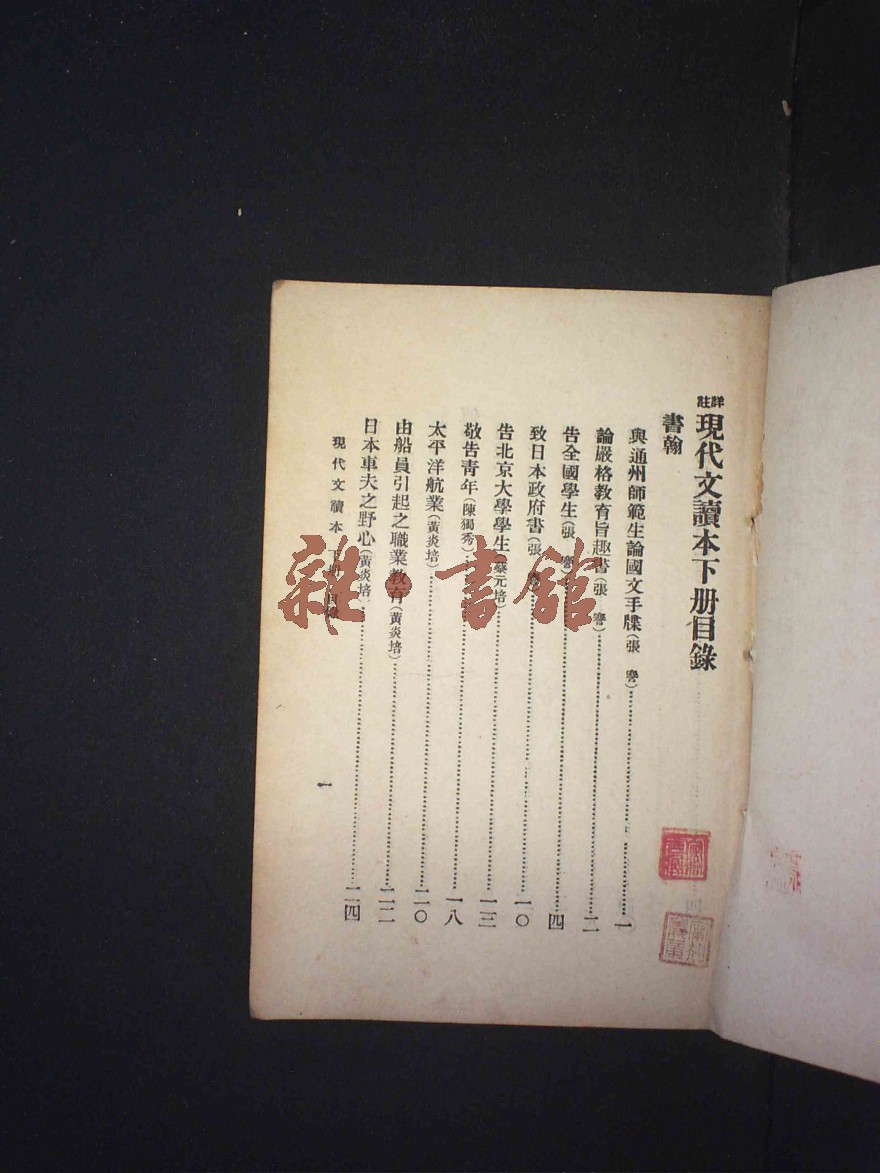 詳註現代文讀本下册目錄
書翰
與通州師範生論國文手牒(張 謇)一
論嚴格教育旨趣書(張 謇)二
告全國學生(張 謇)四
致日本政府書(張 謇)一〇
告北京大學學生(蔡元培)一三
敬告青年(陳獨秀)一八
太平洋航業(黃炎培)二〇
由船員引起之職業教育(黃炎培)二二
日本車夫之野心(黃炎培)二四
現代文讀本 下册 目錄
一
雜·書館